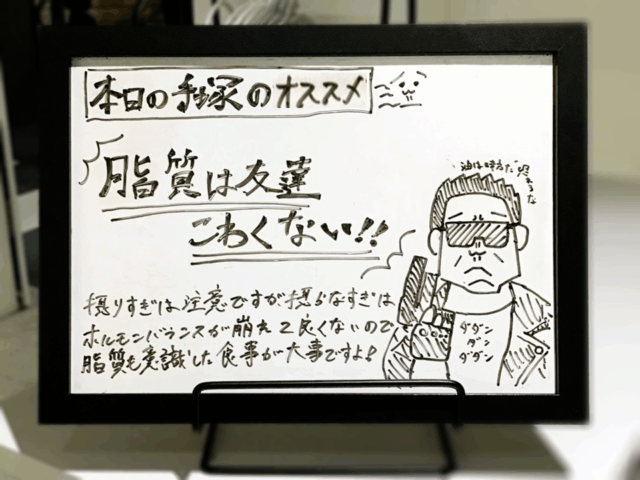 本日の手塚のオススメ
脂質は友達
こわくない!!
摂りすぎは注意ですが摂らなすぎは
ホルモンバランスが崩れて良くないので
脂質も意識した食事が大事ですよ!
ダダン
ダン
ダダン